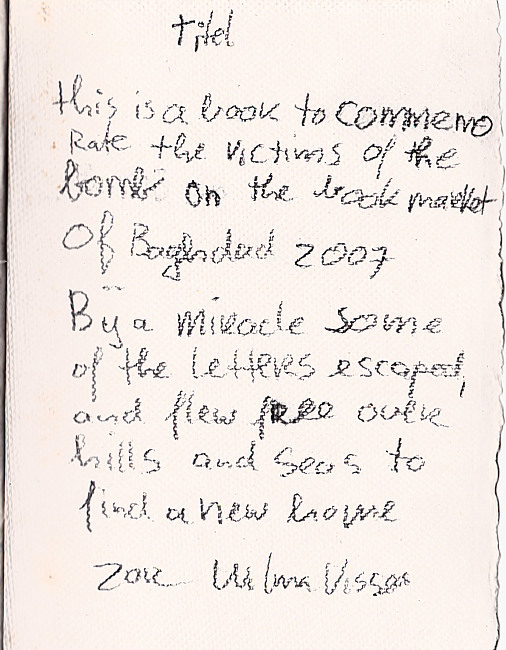 Titel
this is a book to commemo
Rate the victims of the
bomb on the bookmarket
Of Baghdad 2007
By a Miracle some
of the letters escaped,
and flew free over
hills and seas to
find a new home
2012 Wilma Visser